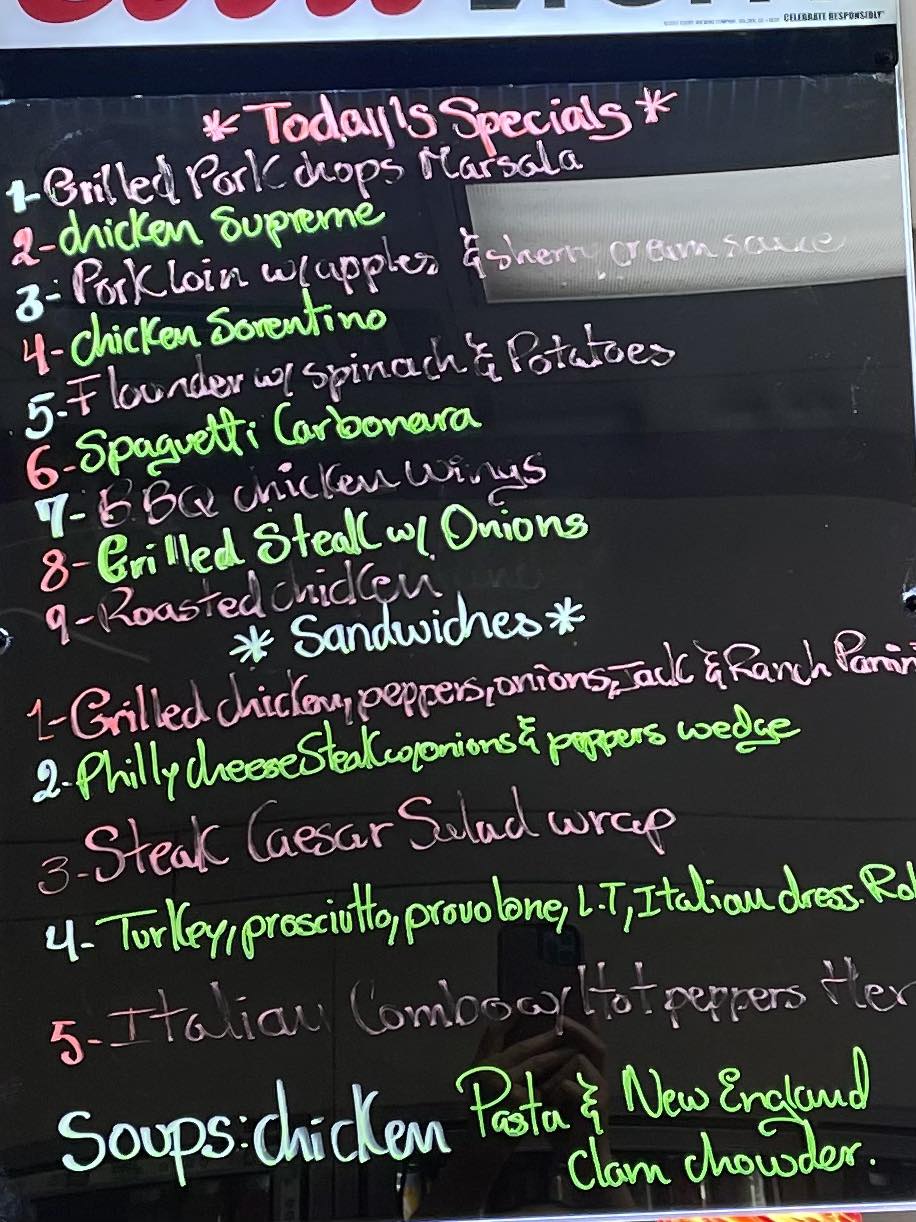 CELEBRATE RESPONSIBLY
* Today's Specials *
1- Grilled Pork chops Marsala
2- chicken Supreme
3- Pork loin w/apples & sherry cream sauce
4- chicken Sorentino
5- Flounder w/ spinach & Potatoes
6- Spaguetti Carbonara
7- BBQ chicken wings
8- Grilled Steak w/ Onions
9- Roasted chicken
* Sandwiches *
1- Grilled chicken, peppers, onions, Jack & Ranch Panini
2- Philly cheese Steak w/onions & peppers wedge
3- Steak Caesar Salad wrap
4- Turkey, prosciutto, provolone, L.T, Italian dress. Rol
5- Italian Combo w/ Hot peppers Her
Soups: chicken Pasta & New England
clam chowder.